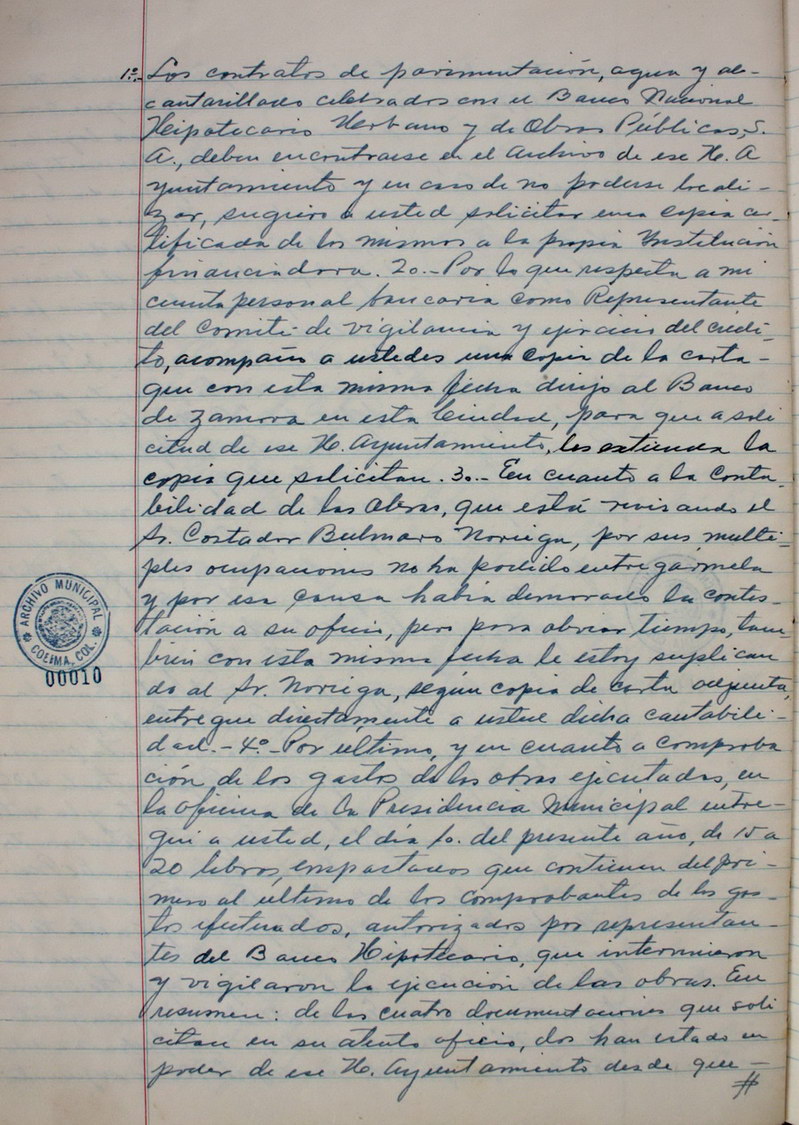 1o.- Los contratos de pavimentación, agua y al-
cantarillado celebrados con el Banco Nacional
Hipotecario Urbano y de Obras Públicas, S.
A., deben encontrarse en el Archivo de ese H. A
yuntamiento y en caso de no poderse locali-
zar, sugiero a usted solicitar una copia cer-
tificada de los mismos a la propia Institución
financiadora. 2o.- Por lo que respecta a mi
cuenta personal bancaria como Representante
del Comité de vigilancia y ejercicio del crédi-
to, acompaño a ustedes una copia de la carta-
que con esta misma fecha dirijo al Banco
de Zamora en esta Ciudad, para que a soli
citud de ese H. Ayuntamiento, les extienda la
copia que solicitan. 3o.- En cuanto a la conta-
bilidad de las Obras, que está revisando el
Sr. Contador Bulmaro Noriega, por sus multi-
ples ocupaciones no ha podido entregármela
y por esa causa había demorado la contes-
tación a su oficio, pero para obviar tiempo, tam-
bién con esta misma fecha le estoy suplican
do al Sr. Noriega, según copia de carta adjunta,
entregue directamente a usted dicha contabili-
dad.- 4o.- Por último, y en cuanto a comproba
ción de los gastos de las obras ejecutadas, en
la oficina de la Presidencia Municipal entre-
gué a usted, el día 1o. del presente año, de 15 a
20 libros, empastados que contienen del pri-
mero al ultimo de los comprobantes de los gas-
tos efectuados, autorizados por representan-
tes del Banco Hipotecario, que intervinieron
y vigilaron la ejecución de las obras. En
resumen: de las cuatro documentaciones que soli
citan en su atento oficio, dos han estado en
poder de ese H. Ayuntamiento desde que-
#
ARCHIVO MUNICIPAL
COLIMA, COL.
00010